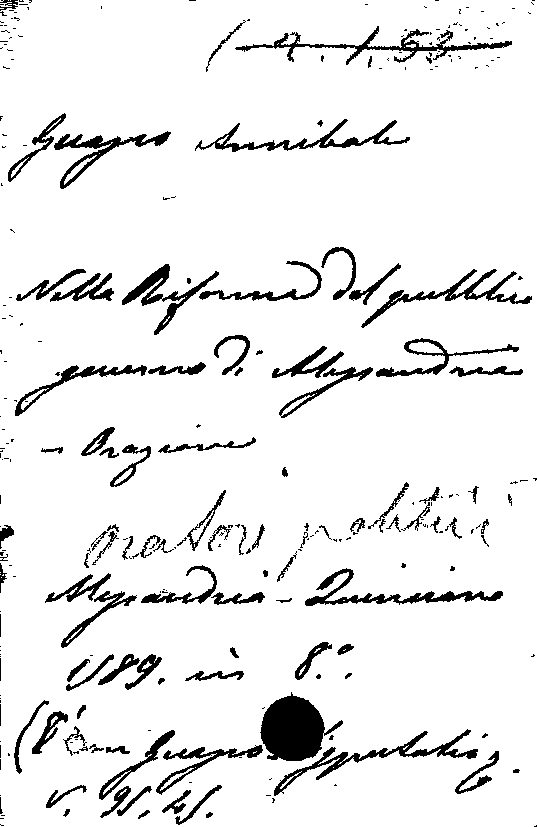 ( 7. 1. 53
Guasco Annibale
Nella Riforma del pubblico
governo di Alessandria
- Orazione
oratori politici -
Alessandria - Quinciano
1589. in 8.°.
(È con Guasco
V. 95. 45.